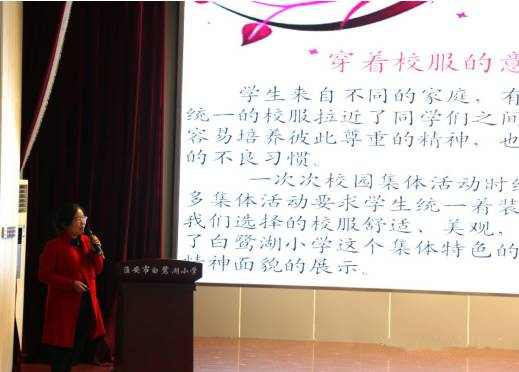 穿着校服的意
学生来自不同的家庭，有
统一的校服拉近了同学们之间
容易培养彼此尊重的精神，也
的不良习惯。
一次次校园集体活动时纟
多集体活动要求学生统一着装
我们选择的校服舒适、美观，
了白鹭湖小学这个集体特色的
精神面貌的展示。
淮安市白鹭湖小学